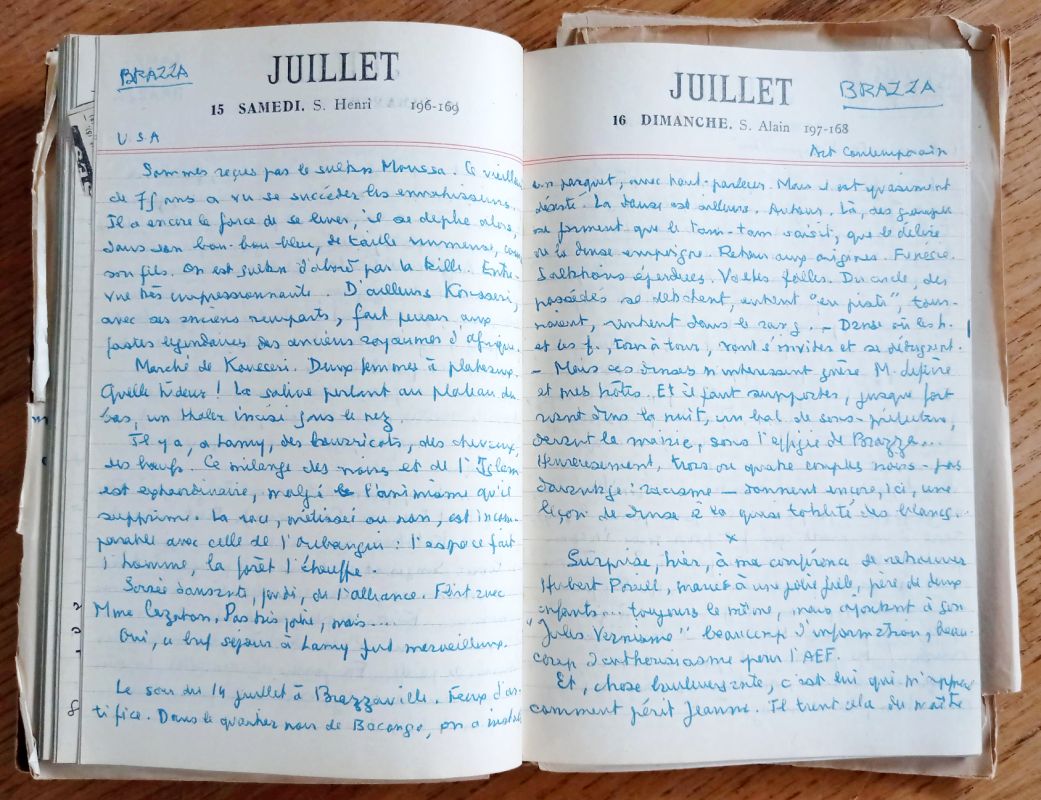 BRAZZA
JUILLET
15 SAMEDI. S. Henri 196-169
USA
Sommes reçus par le sultan Moussa. Ce vieillard
de 75 ans a vu se succéder les envahisseurs.
Il a encore la force de se lever, il se déplie alors,
dans son bou-bou bleu, de taille immense, comme
son fils. On est sultan d'abord par la taille. Entre-
vue très impressionnante. D'ailleurs Kousseri,
avec ses anciens remparts, fait penser aux
fastes légendaires des anciens royaumes d'Afrique.
Marché de Kousseri. Deux femmes à plateaux.
Quelle hideur ! La salive perlant au plateau du
bas, un thaler incisé sous le nez.
Il y a, à Lamy, des bourricots, des chevaux,
des bœufs. Ce mélange des noirs et de l'Islam
est extraordinaire, malgré l'animisme qu'il
supprime. La race, métissée ou non, est incom-
parable avec celle de l'Oubangui : l'espace fait
l'homme, la forêt l'étouffe.
Soirée dansante, jeudi, de l'alliance. Flirt avec
Mme Cazaton. Pas très jolie, mais....
Oui, ce bref séjour à Lamy fut merveilleux.
Le soir du 14 juillet à Brazzaville. Feux d'ar-
tifice. Dans le quartier noir de Bacongo, on a installé
JUILLET
BRAZZA
16 DIMANCHE. S. Alain 197-168
Art Contemporain
un parquet, avec haut-parleurs. Mais il est quasiment
désert. La danse est ailleurs. Autour. Là, des groupes
se forment que le tam-tam saisit, que le délire
de la danse empoigne. Retour aux origines. Frénésie.
Saltations éperdues. Voltes folles. Du cercle, des
possédés se détachent, entrent "en piste", tour-
noient, rentrent dans le rang. - Danse où les h.
et les f., tour à tour, vont s'inviter et se dérobent.
- Mais ces danses n'intéressent guère M.
et mes hôtes. Et il faut supporter, jusque fort
avant dans la nuit, un bal de sous-préfecture,
devant la mairie, sous l'effigie de Brazza...
Heureusement, trois ou quatre couples noirs - pas
davantage : racisme - donnent encore, ici, une
leçon de danse à la quasi totalité des blancs.
x
Surprise, hier, à ma conférence de retrouver
Hubert, marié à une jolie fille, père de deux
enfants... toujours le même, mais ajoutant à son
"Jules Vernisme" beaucoup d'information, beau-
coup d'enthousiasme pour l'AEF.
Et, chose bouleversante, c'est lui qui m'apprend
comment périt Jeanne. Il tient cela du maître